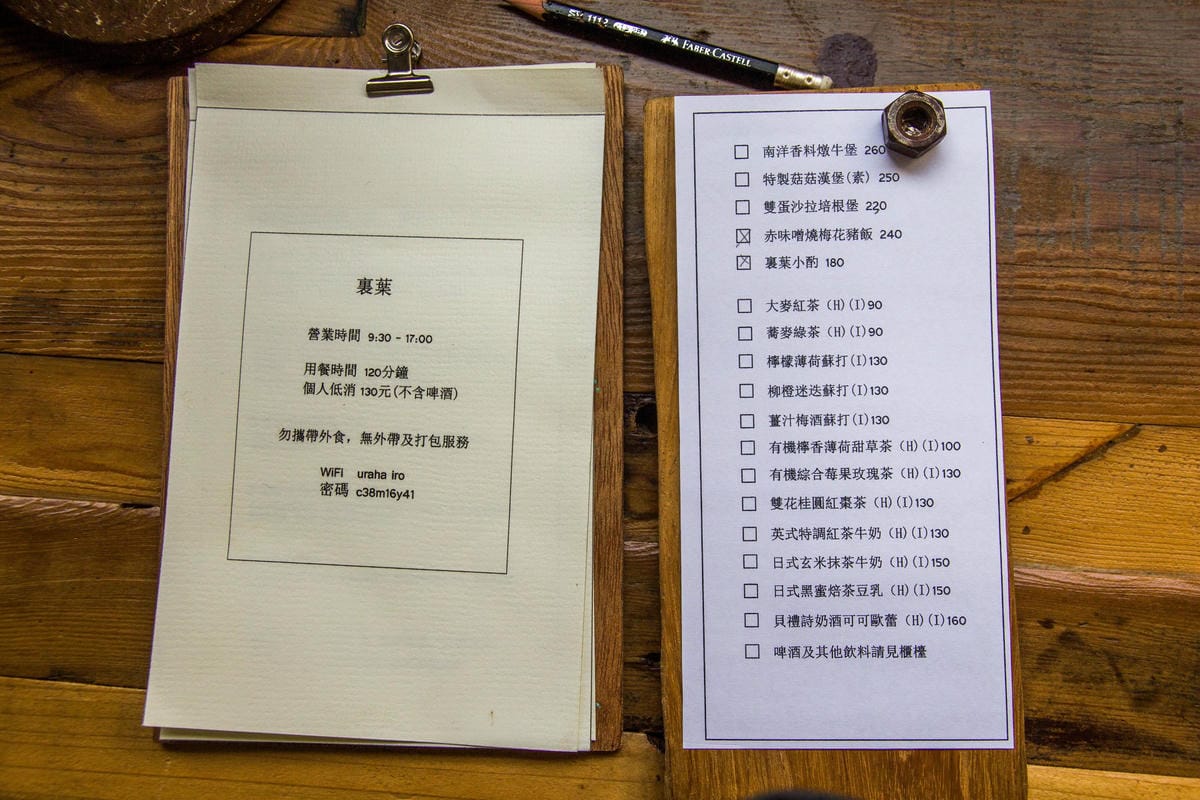 FABER CASTELL
裏葉
營業時間 9:30 - 17:00
用餐時間 120分鐘
個人低消 130元(不含啤酒)
勿攜帶外食，無外帶及打包服務
WiFi uraha iro
密碼 c38m16y41
南洋香料燉牛堡 260
特製菇菇漢堡(素) 250
雙蛋沙拉培根堡 220
赤味噌燒梅花豬飯 240
裏葉小酌 180
大麥紅茶 (H)(I)90
蕎麥綠茶 (H)(I)90
檸檬薄荷蘇打(I)130
柳橙迷迭蘇打(I)130
薑汁梅酒蘇打(I)130
有機檸香薄荷甜草茶 (H)(I)100
有機綜合莓果玫瑰茶 (H)(I)130
雙花桂圓紅棗茶 (H)(I)130
英式特調紅茶牛奶 (H)(I)130
日式玄米抹茶牛奶 (H)(I)150
日式黑蜜焙茶豆乳 (H)(I)150
貝禮詩奶酒可可歐蕾 (H)(I)160
啤酒及其他飲料請見櫃檯